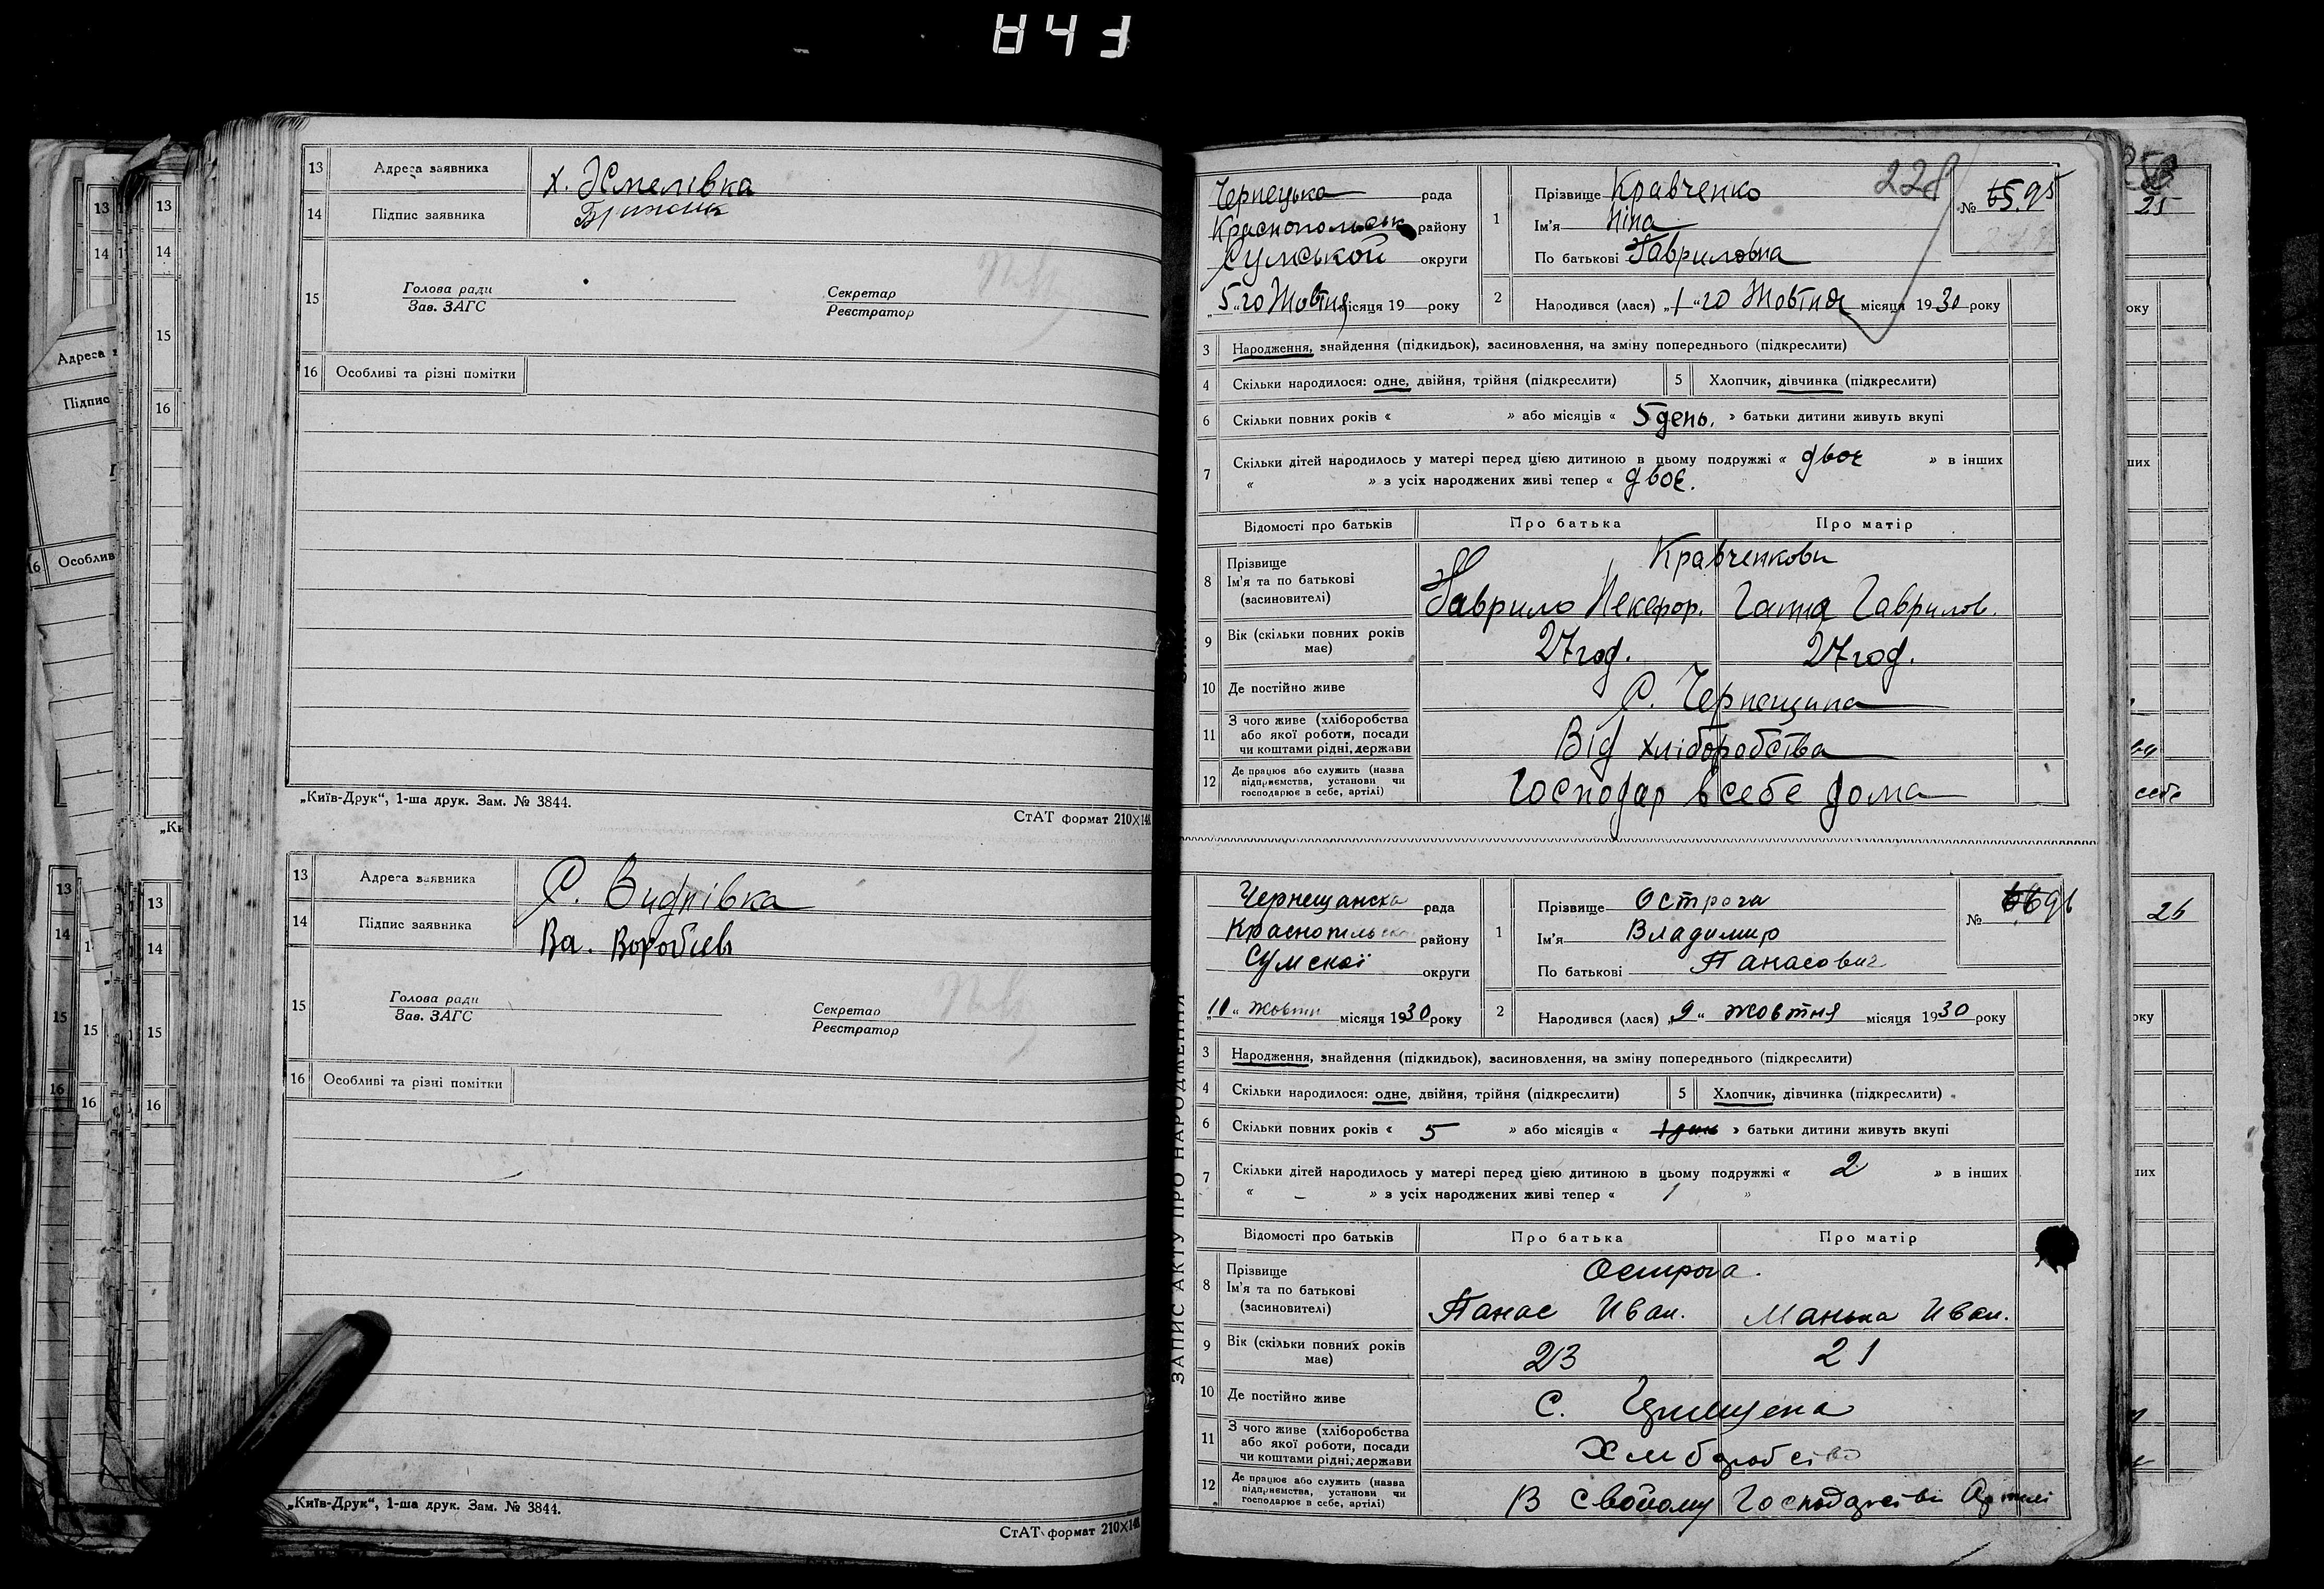 843
13 Адреса заявника х. Хмелівка
14 Підпис заявника
15 Голова ради Секретар
Зав. ЗАГС Реєстратор
16 Особливі та різні помітки
„Київ-Друк“, 1-ша друк. Зам. № 3844.
СтАТ формат 210×148
13 Адреса заявника С. Виднівка
14 Підпис заявника Ва. Воробиев
15 Голова ради Секретар
Зав. ЗАГС Реєстратор
16 Особливі та різні помітки
„Київ-Друк“, 1-ша друк. Зам. № 3844.
СтАТ формат 210×148
228
Чернецька рада 1 Прізвище Кравченко № 65. 95
Краснопольськ району Ім'я Ніна
Сумськой округи По батькові Гавриловна
„5“ го Жовтня місяця 19 року 2 Народився (лася) „1“ го Жовтня місяця 1930 року
3 Народження, знайдення (підкидьок), засиновлення, на зміну попереднього (підкреслити)
4 Скільки народилося: одне, двійня, трійня (підкреслити) 5 Хлопчик, дівчинка (підкреслити)
6 Скільки повних років « » або місяців « 5 день. » батьки дитини живуть вкупі
7 Скільки дітей народилось у матері перед цією дитиною в цьому подружжі « двоє » в інших
« » з усіх народжених живі тепер « двоє.
Відомості про батьків Про батька Про матір
8 Прізвище Кравченкови
Ім'я та по батькові
(засиновителі) Гаврило Некефор. Ганна Гаврилов.
9 Вік (скільки повних років має) 27 год. 27 год.
10 Де постійно живе С. Чернещина
11 З чого живе (хліборобства
або якої роботи, посади
чи коштами рідні, держави Від хліборобства
12 Де працює або служить (назва
підприємства, установи чи
господарює в себе, артілі) Господар в себе дома
ЗАПИС АКТУ ПРО НАРОДЖЕННЯ
Чернещанска рада 1 Прізвище Острога № 66 96
району Ім'я Владимир
Сумскої округи По батькові Панасович
„10“ Жовтн місяця 1930 року 2 Народився (лася) „9“ жовтня місяця 1930 року
3 Народження, знайдення (підкидьок), засиновлення, на зміну попереднього (підкреслити)
4 Скільки народилося: одне, двійня, трійня (підкреслити) 5 Хлопчик, дівчинка (підкреслити)
6 Скільки повних років « 5 » або місяців « 1 день » батьки дитини живуть вкупі
7 Скільки дітей народилось у матері перед цією дитиною в цьому подружжі « 2 » в інших
« – » з усіх народжених живі тепер « 1 »
Відомості про батьків Про батька Про матір
8 Прізвище Острога.
Ім'я та по батькові
(засиновителі) Панас Иван. Манька Иван.
9 Вік (скільки повних років має) 23 21
10 Де постійно живе С.
11 З чого живе (хліборобства
або якої роботи, посади
чи коштами рідні, держави
12 Де працює або служить (назва
підприємства, установи чи
господарює в себе, артілі) В свойому